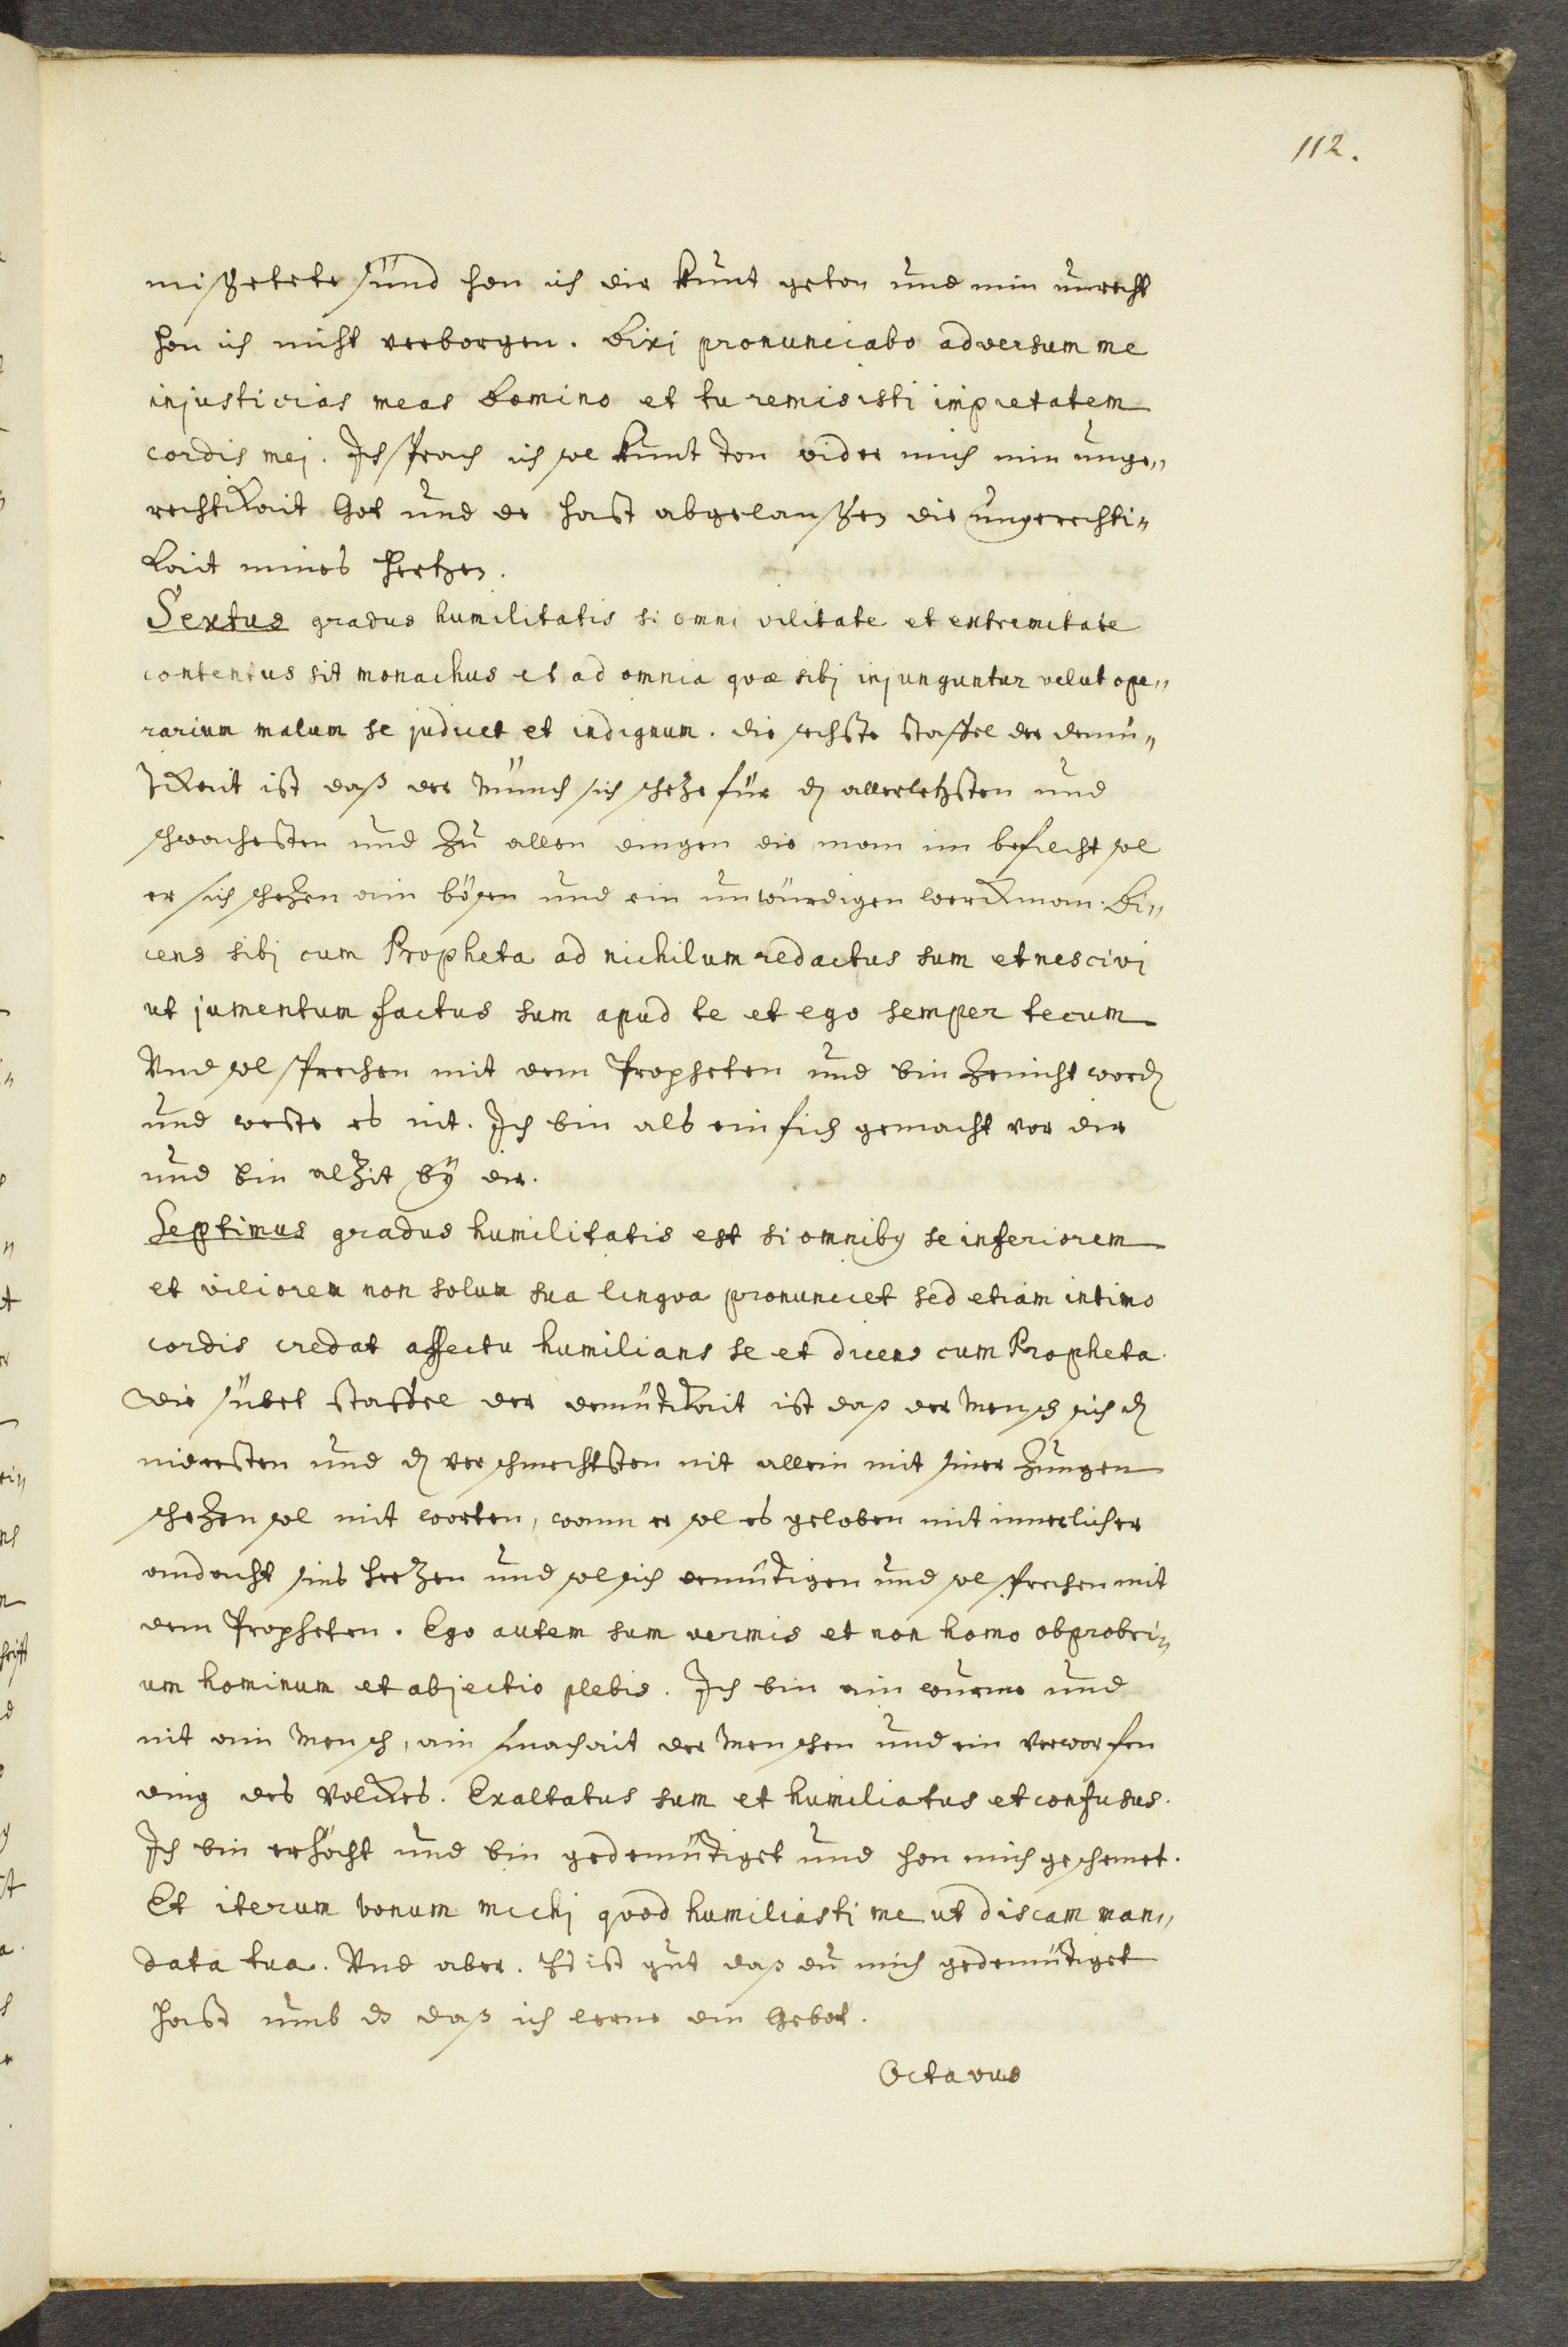 112.
mißetete sünd hon ich dir kunt geton und min unrecht
hon ich nicht verborgen. Dixi pronunciabo adversum me
injusticias meas Domino et tu remisisti impietatem
cordis mej. Ich sprach ich sol kunt ton wider mich min unge„
rechtikait Got und de hast abgelaußen die ungerechti„
kait mines hertzen.
Sextus gradus humilitatis si omni vilitate et extremitate
contentus sit monachus et ad omnia quæ sibj injunguntur velut ope„
rarium malum se judicet et indignum. die sechste staffel der demü„
tikait ist daß der münch sich scheze für dz allerletzsten und
schwachesten und zu allen dingen die man im befilcht sol
er sich schezen ain bösen und ein unwürdigen werckman. Di„
cens sibj cum Propheta ad nichilum redactus sum et nescivi
ut jumentum factus sum apud te et ego semper tecum
Und sol sprechen mit dem Propheten und bin zenicht word
und weste es nit. Ich bin als ein fich gemacht vor dir
und bin alzit bÿ dir.
Septimus gradus humilitatis est si omnibq se inferiorem
et viliorem non solum sua lingva pronunciet sed etiam intimo
cordis credat affectu humilians se et dicens cum Propheta.
die sübet staffel der demütikait ist daß der Mensch sich dz
nidersten und dz verschmechtsten nit allein mit siner zungen
schezen sol mit worten, wann er sol es geloben mit innerlicher
andacht sins herzen und sol sich demütigen und sol sprechen mit
dem Propheten. Ego autem sum vermis et non homo obprobri„
um hominum et abjectio plebis. Ich bin ain wurme und
nit ain Mensch, ain smachait der Menschen und ein verworfen
ding des Volkes. Exaltatus sum et humiliatus et confusus.
Ich bin erhöcht und bin gedemütiget und hon mich geschemet.
Et iterum bonum michj quod humiliasti me ut discam man„
data tua. Und aber. Es ist gut daß du mich gedemütiget
hast umb dz daß ich lerne din Gebot.
Octavus